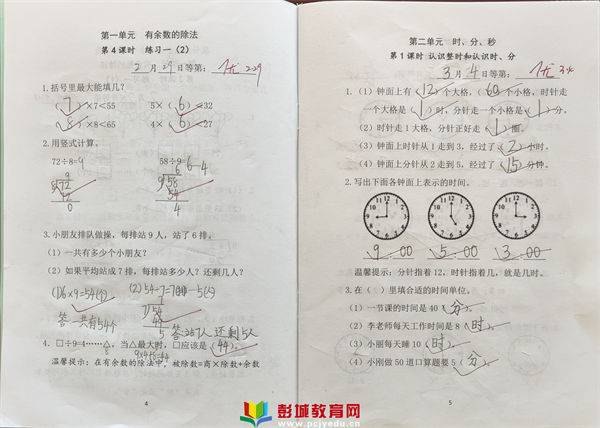 第一单元 有余数的除法
第 4 课时 练习一（2）
2 月 29 日等第： 优 2.29
1.括号里最大能填几？
（ 7 ）×7＜55 5×（ 6 ）＜32
（ 8 ）×8＜65 4×（ 6 ）＜27
2.用竖式计算。
72÷8=9 58÷9=6……4
3.小朋友排队做操，每排站9人，站了6排。
（1）一共有多少个小朋友？
（2）如果平均站成7排，每排站多少人？还剩几人？
(1)6×9=54(个) (2)54÷7=7(个)……5(个)
答:一共有54个 答:站7人 还剩5人
4. □÷9=4……△，当△最大时，□应该是（ 44 ）。
9×4+8=44
温馨提示：在有余数的除法中，被除数=商×除数+余数
4
第二单元 时、分、秒
第 1 课时 认识整时和认识时、分
3 月 4 日等第： 优 3.4
1.（1）钟面上有（ 12 ）个大格，（ 60 ）个小格，时针走
一个大格是（ 1 ）时，分针走一个小格是（ 1 ）分。
（2）时针走1大格，分针正好走（ 1 ）圈。
（3）钟面上时针从1走到3，经过了（ 2 ）小时。
（4）钟面上分针从2走到5，经过了（ 15 ）分钟。
2.写出下面各钟面上表示的时间。
9:00 5:00 3:00
温馨提示：分针指着12，时针指着几，就是几时。
3.在（ ）里填合适的时间单位。
（1）一节课的时间是40（ 分 ）。
（2）李老师每天工作时间是8（ 时 ）。
（3）小丽每天睡10（ 时 ）。
（4）小刚做50道口算题要5（ 分 ）。
5
彭城教育网
www.pcjyedu.cn